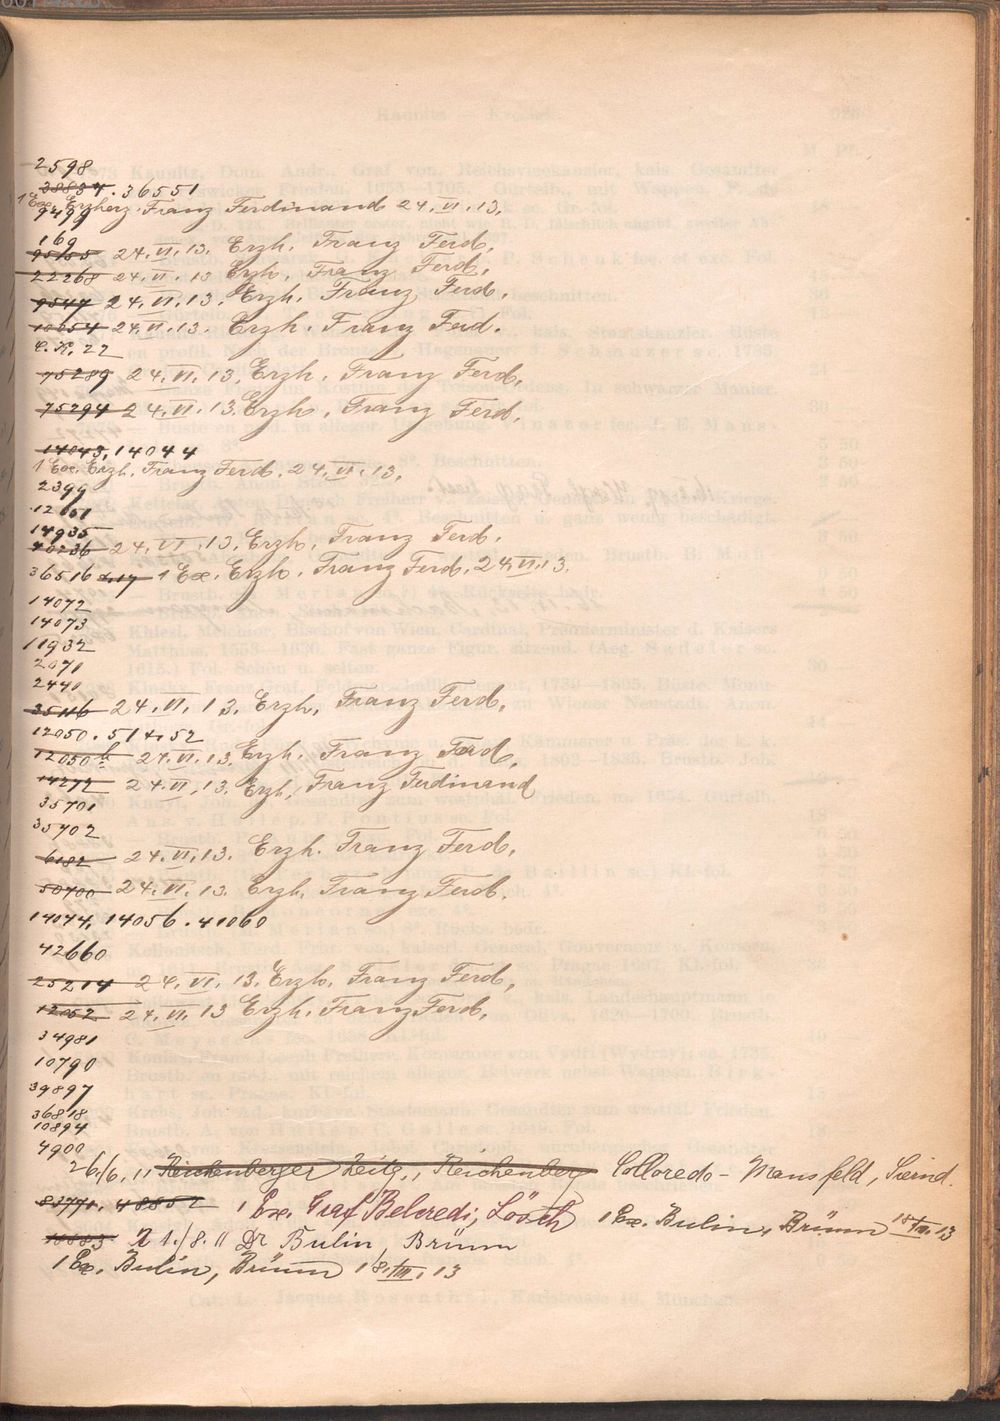 2598
38834. 36551
1 Ex. Erzherz. Franz Ferdinand 24. VI. 13.
9439
169
95155 24. VI. 13. Erzh. Franz Ferd.
22268 24. VI. 13 Erzh. Franz Ferd.
9547 24. VI. 13. Erzh. Franz Ferd.
10654 24. VI. 13. Erzh. Franz Ferd.
C. K. 22
75289 24. VI. 13. Erzh. Franz Ferd.
75294 24. VI. 13. Erzh. Franz Ferd.
14043, 14044
1 Ex. Erzh. Franz Ferd. 24. VI. 13.
2399
12051
14935
70236 24. VI. 13. Erzh. Franz Ferd.
36516 1 Ex. Erzh. Franz Ferd. 24. VI. 13.
14072
14073
11932
2071
2440
35116 24. VI. 13. Erzh. Franz Ferd.
12050. 51 + 52
12050b 24. VI. 13. Erzh. Franz Ferd.
14272 24. VI. 13. Erzh. Franz Ferdinand
35701
35702
6182 24. VI. 13. Erzh. Franz Ferd.
50700 24. VI. 13. Erzh. Franz Ferd.
14044, 14056. 41060
42660
25214 24. VI. 13. Erzh. Franz Ferd.
12052 24. VI. 13 Erzh. Franz Ferd.
34981
10790
39897
36818
10894
4900
26./6. 11 Reichenberger Zeitg., Reichenberg Colloredo-Mansfeld, Siernd.
83771, 48852 1 Ex. Graf Belcredi, Lösch 1 Ex. Bulin, Brünn 18. VIII. 13
10883 21./8. 11 Dr Bulin, Brünn
1 Ex. Bulin, Brünn 18. VIII. 13